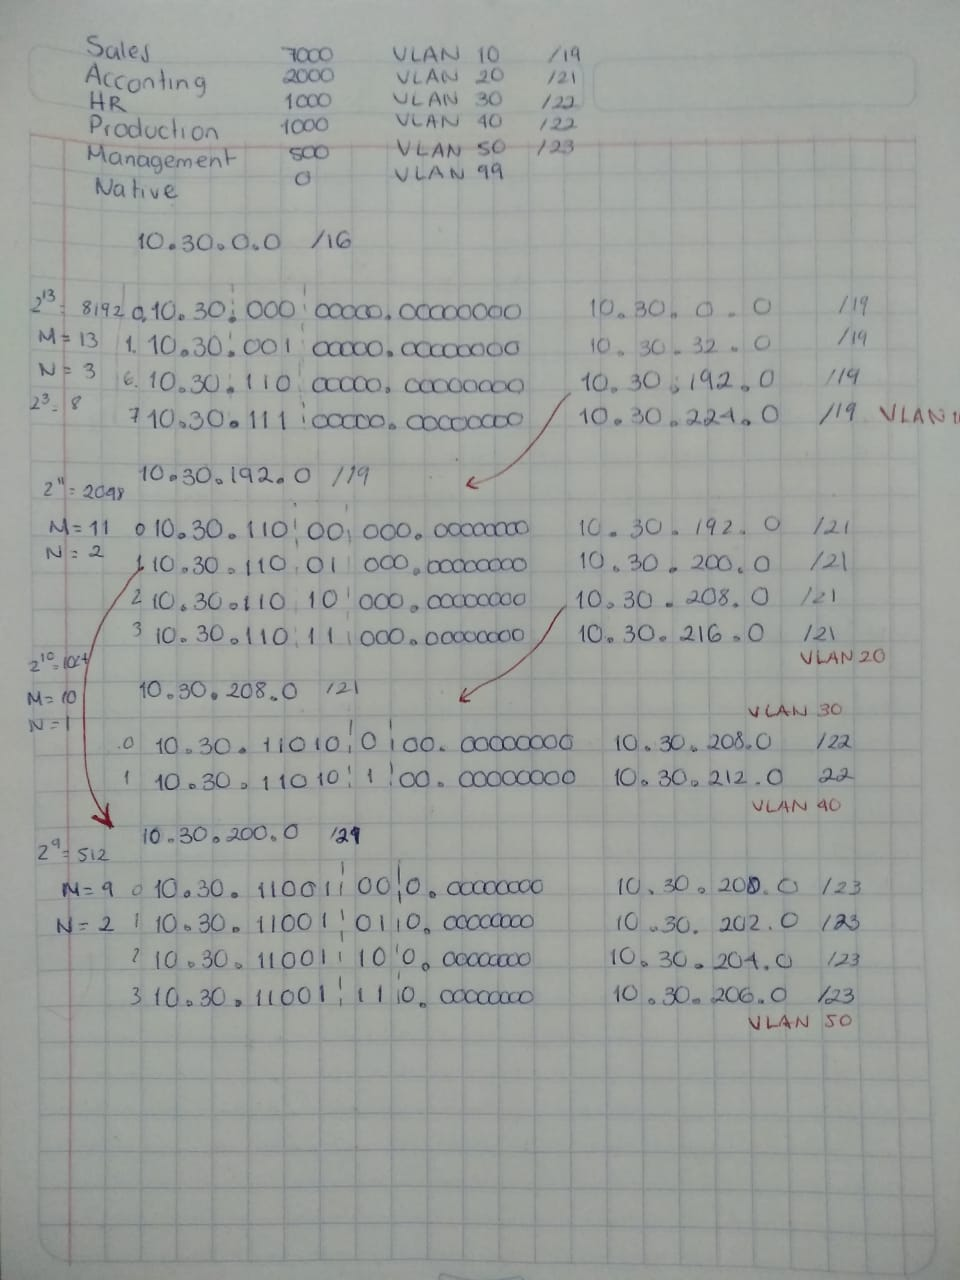 Sales 7000 VLAN 10 /19
Acconting 2000 VLAN 20 /21
HR 1000 VLAN 30 /22
Production 1000 VLAN 40 /22
Management 500 VLAN 50 /23
Native 0 VLAN 99
10.30.0.0 /16
2^13 = 8192 0. 10.30.000 00000.00000000 10.30.0.0 /19
M=13 1. 10.30.001 00000.00000000 10.30.32.0 /19
N=3 6. 10.30.110 00000.00000000 10.30.192.0 /19
2^3=8 7 10.30.111 00000.00000000 10.30.224.0 /19 VLAN
10.30.192.0 /19
2^11=2048
M=11 0 10.30.110 00 000.00000000 10.30.192.0 /21
N=2 1 10.30.110 01 000.00000000 10.30.200.0 /21
2 10.30.110 10 000.00000000 10.30.208.0 /21
3 10.30.110 11 000.00000000 10.30.216.0 /21
VLAN 20
2^10=1024
M=10 10.30.208.0 /21
N=1 VLAN 30
.0 10.30.11010 0 00.00000000 10.30.208.0 /22
1 10.30.11010 1 00.00000000 10.30.212.0 22
VLAN 40
10.30.200.0 /21
2^9=512
M=9 0 10.30.11001 00 0.00000000 10.30.200.0 /23
N=2 1 10.30.11001 01 10.00000000 10.30.202.0 /23
2 10.30.11001 10 0.00000000 10.30.204.0 /23
3 10.30.11001 11 0.00000000 10.30.206.0 /23
VLAN 50